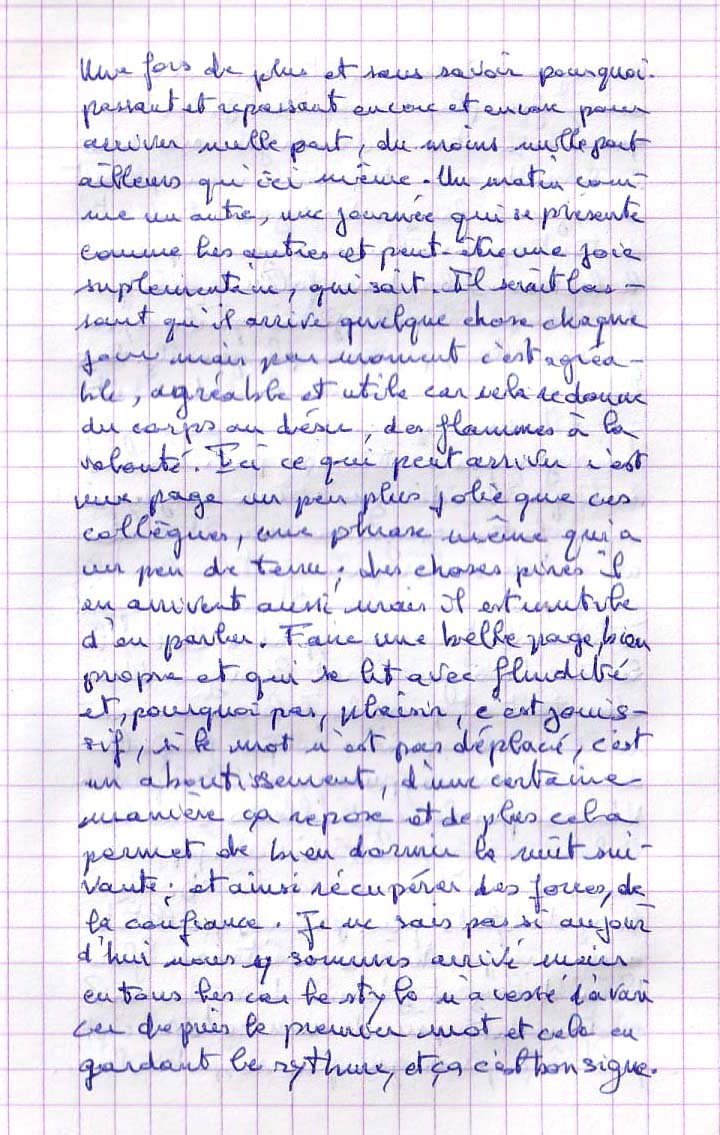 Une fois de plus et sans savoir pourquoi.
passant et repassant encore et encore pour
arriver nulle part, du moins nulle part
ailleurs qu'ici même. Un matin com-
me un autre, une journée qui se présente
comme les autres et peut-être une joie
suplementaire, qui sait. Il serait las-
sant qu'il arrive quelque chose chaque
jour mais par moment c'est agréa-
ble, agréable et utile car cela redonne
du corps au désir, des flammes à la
volonté. Ici ce qui peut arriver c'est
une page un peu plus jolie que ces
collègues, une phrase même qui a
un peu de tenue; des choses pires il
en arrivent aussi mais il est inutile
d'en parler. Faire une belle page, bien
propre et qui se lit avec fluidité
et, pourquoi pas, plaisir, c'est jouis-
sif, si le mot n'est pas déplacé, c'est
un aboutissement, d'une certaine
manière ça repose et de plus cela
permet de bien dormir la nuit sui-
vante; et ainsi récupérer des forces, de
la confiance. Je ne sais pas si aujour
d'hui nous y sommes arrivé mais
en tous les cas le stylo n'a cessé d'avan
cer depuis le premier mot et cela en
gardant le rythme, et ça c'est bon signe.